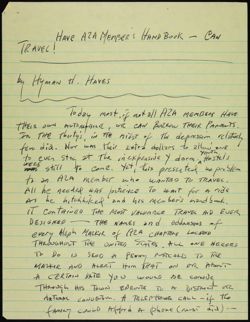 HAVE AZA MEMBER'S HANDBOOK — CAN
TRAVEL!
by Hyman H. Haves
Today most, if not all AZA MEMBERS HAVE
THEIR OWN AUTOMOBILE, OR CAN BORROW THEIR PARENTS.
IN THE THIRTY'S, IN THE MIDST OF THE DEPRESSION RELATIVELY
FEW DID. NOR WAS THEIR EXTRA DOLLARS TO ALLOW ONE
TO EVEN STAY AT THE INEXPENSIVE Y DORM, YOUTH HOSTELS
WERE STILL TO COME. YET, THIS PRESENTED NO PROBLEM
TO AN AZA MEMBER WHO WANTED TO TRAVEL.
ALL HE NEEDED WAS PATIENCE TO WAIT FOR A RIDE
AS HE HITCHHIKED AND HIS MEMBERS HANDBOOK.
IT CONTAINED THE MOST VALUABLE TRAVEL AID EVER
DESIGNED — THE NAMES AND ADDRESSES OF
EVERY ALEPH MAZKIR OF AZA CHAPTERS LOCATED
THROUGHOUT THE UNITED STATES. ALL ONE NEEDED
TO DO IS SEND A PENNY POSTCARD TO THE
MAZKIR AND ALERT HIM THAT ON OR ABOUT
A CERTAIN DATE YOU WOULD BE COMING
THROUGH HIS TOWN ENROUTE TO A DISTRICT OR
NATIONAL CONVENTION. A TELEPHONE CALL — IF THE
FAMILY COULD AFFORD A PHONE